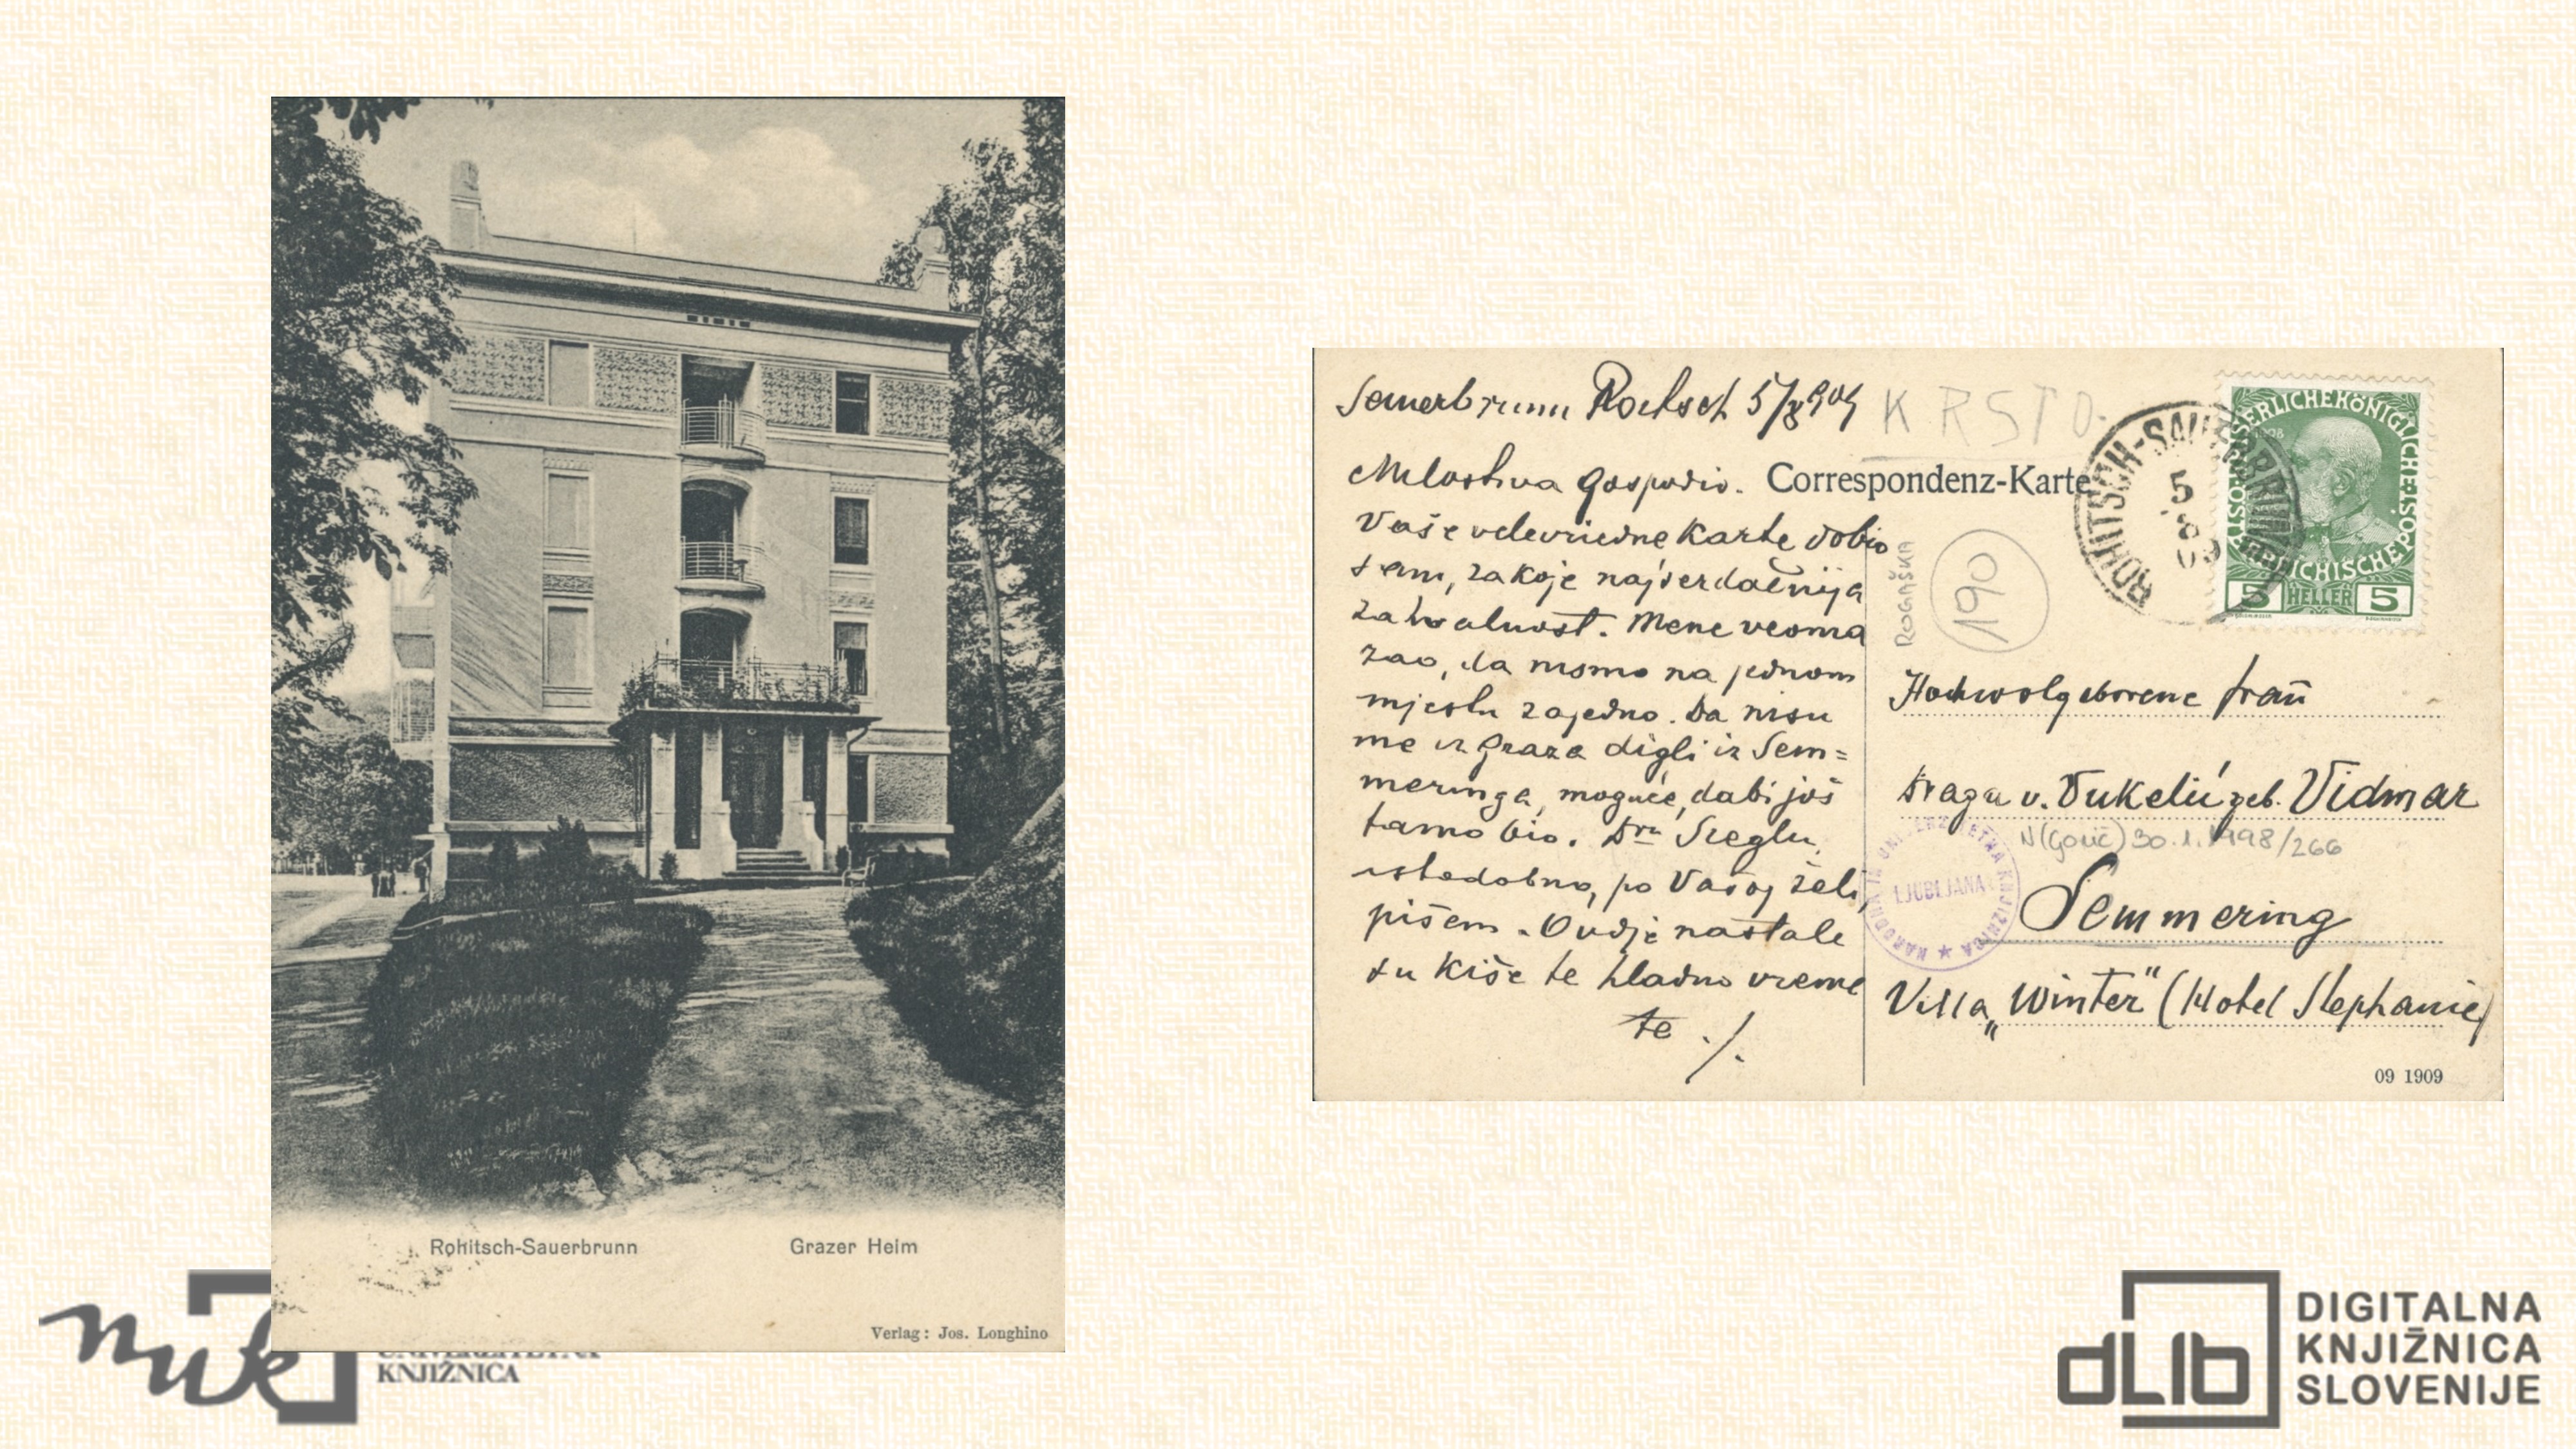 Rohitsch-Sauerbrunn Grazer Heim
Verlag: Jos. Longhino
Sauerbrunn 5/8 909
KRSTO.
Milostiva Gospodjo.
Correspondenz-Karte
Vaše velevriedne Karte dobio
sam, za koje najserdačnija
zahvalnost. Mene veoma
žao, da nismo na jednom
mjestu zajedno. Da nisu
me iz Graza digli iz Sem=
meringa, moguće, da bi još
tamo bio. Dru
istodobno, po Vašoj želi,
pišem. Ovdje nastale
su kiše te hladno vreme
te ./.
ROGAŠKA
190
ROHITSCH-SAUERBRUNN
5
8
09
KAISERLICHE KÖNIGLICHE
ÖSTERREICHISCHE POST
1908
5 HELLER 5
Hochwolgeborene Frau
Draga v. Vukelić geb. Vidmar
N(Gorič) 30.1.1998/266
NARODNA IN UNIVERZITETNA KNJIŽNICA
LJUBLJANA
Semmering
Villa „Winter" (Hotel Stephanie)
09 1909
nuk
UNIVERZITETNA
KNJIŽNICA
dLib
DIGITALNA
KNJIŽNICA
SLOVENIJE